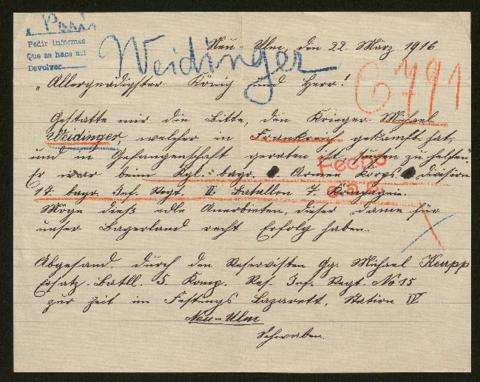 Paris
Pedir informes
Que se hace así
Devolver
Weidinger
Neu-Ulm, den 22. März 1916
6791
"Allergnädigster König und Herr!
Gestatte mir die Bitte, den Krieger Michael
Weidinger, welcher in Frankreich gekämpft hat
und in Gefangenschaft geraten ist
Er war beim Kgl. bayr. Armee Korps
Fecho
17. bayr. Inf. Regt. III Batallon 7. Kompagnie.
Möge dieß edle Anerbieten, dieser Dame für
unser Bayerland recht Erfolg haben.
Abgesand durch den Reservisten Gg. Michael Knapp
Ersatz. Batll. 5. Komp. Res. Inf. Regt. No 15
zur Zeit im Festungs Lazarett, Station IV
Neu-Ulm
Schwaben.